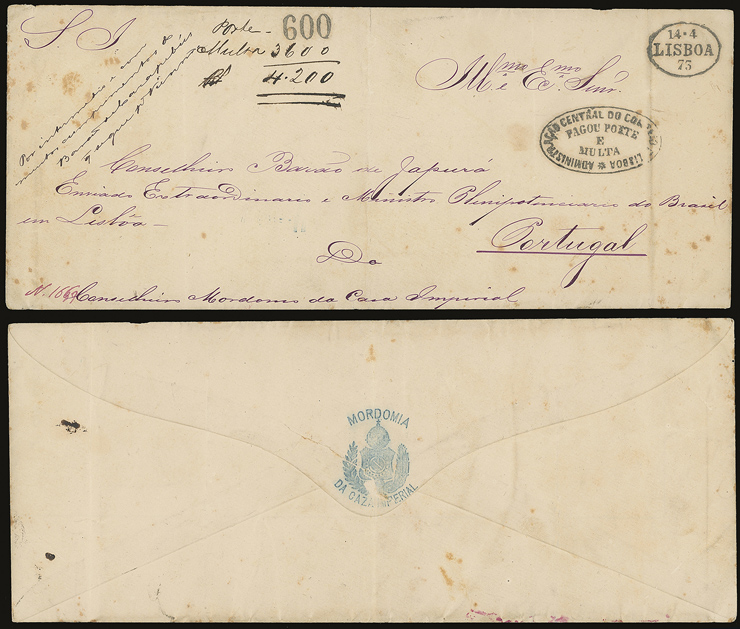 S I
Porte - 600
Multa 3600
4.200
14·4
LISBOA
75
Illmo e Exmo Snr.
ADMINISTRAÇÃO CENTRAL DO CORREIO LISBOA
PAGOU PORTE
E
MULTA
Conselheiro Barão de Japurá
Enviado Extraordinario e Ministro Plenipotenciario do Brasil
em Lisbôa -
Portugal
Do
Conselheiro Mordomo da Casa Imperial
MORDOMIA
DA CAZA IMPERIAL